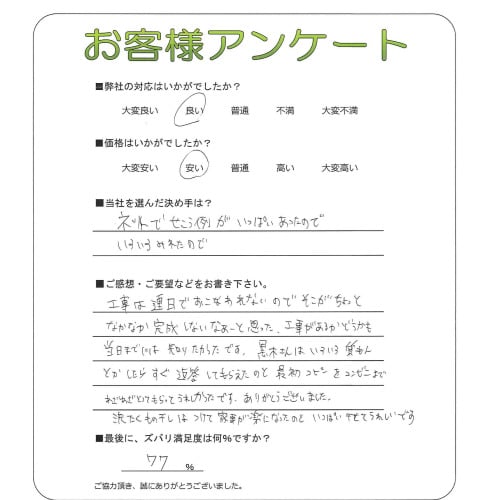 お客様アンケート
■弊社の対応はいかがでしたか？
大変良い 良い 普通 不満 大変不満
■価格はいかがでしたか？
大変安い 安い 普通 高い 大変高い
■当社を選んだ決め手は？
ネットでせこう例がいっぱいあったので
いろいろ みれたので
■ご感想・ご要望などをお書き下さい。
工事は連日でおこなわれないのでそこがちょっと
なかなか完成しないなぁーと思った、工事があるかどうかも
当日までには知りたかったです。黒木さんはいろいろ質もん
とかしたらすぐ返答してもらえたのと最初コピーをコンビニまで
わざわざとてもらってうれしかったです。ありがとうございました。
洗たくもの干しはつけて家事が楽になったのと いっぱい干せてうれしいです
■最後に、ズバリ満足度は何％ですか？
77 ％
ご協力頂き、誠にありがとうございました。